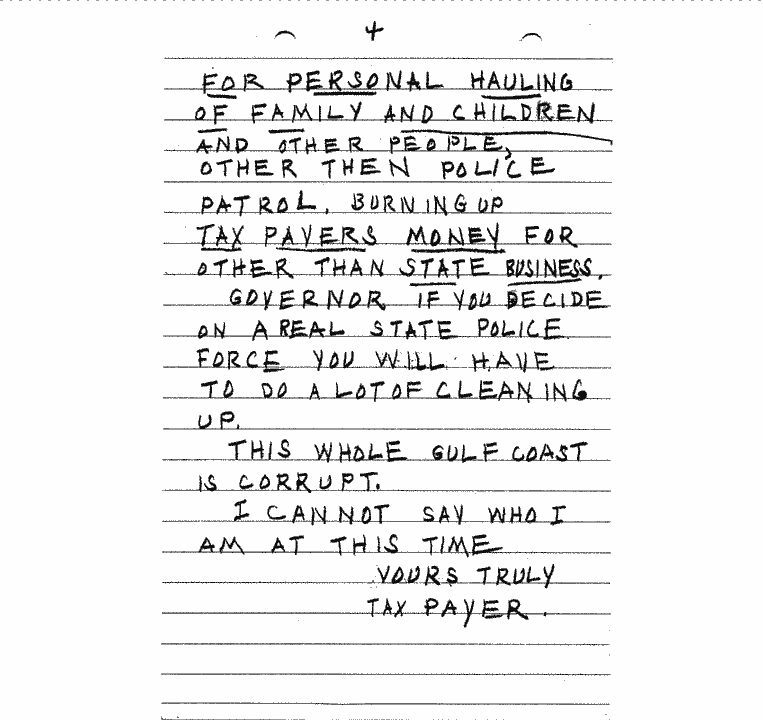 4
FOR PERSONAL HAULING
OF FAMILY AND CHILDREN
AND OTHER PEOPLE,
OTHER THEN POLICE
PATROL. BURNING UP
TAX PAYERS MONEY FOR
OTHER THAN STATE BUSINESS.
GOVERNOR IF YOU DECIDE
ON A REAL STATE POLICE
FORCE YOU WILL HAVE
TO DO A LOT OF CLEANING
UP.
THIS WHOLE GULF COAST
IS CORRUPT.
I CANNOT SAY WHO I
AM AT THIS TIME
YOURS TRULY
TAX PAYER.